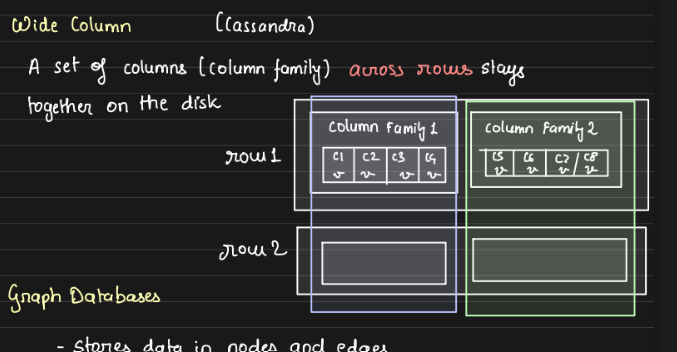 Wide Column (Cassandra)
A set of columns (column family) across rows stays
together on the disk
Column Family 1 Column Family 2
row 1
C1 C2 C3 C4 C5 C6 C7 C8
v v v v v v v v
row 2
Graph Databases
- stores data in nodes and edges